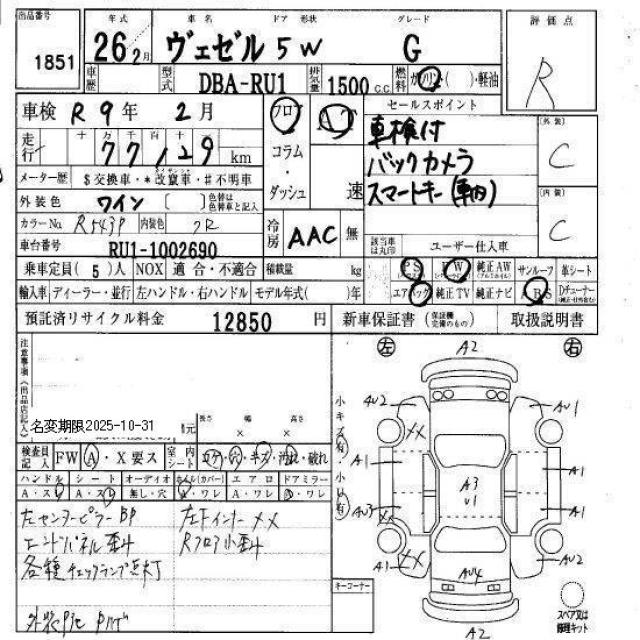 出品番号 年式 車名 ドア 形状 グレード 評価点
1851 26年2月 ヴェゼル 5W G R
車歴 型式 DBA-RU1 排気量 1500c.c. 燃料 ガソリン・( )・軽油
車検 R 9年 2月 フロア AT セールスポイント
走行 十万千百十 77129km コラム・ダッシュ 速
車検付
バックカメラ
スマートキー(車内)
[外装] C
[内装] C
メーター歴 $交換車・*改竄車・#不明車
外装色 ワイン [ ] 色替は色替車と記入
カラーNo. R543P 内装色 クロ
冷房 AAC 無 該当車は丸印 ユーザー仕入車
車台番号 RU1-1002690
乗車定員(5)人 NOX 適合・不適合 積載量 kg PS PW 純正AW サンルーフ 革シート
輸入車 ディーラー・並行 左ハンドル・右ハンドル モデル年式( )年 エアバッグ 純正TV 純正ナビ ABS Dチューナー
預託済リサイクル料金 12850円 新車保証書(保証継完備のもの) 取扱説明書
注意事項(出品店記入)
名変期限2025-10-31
長さ 幅 高さ
元 × ×
検査員記入 FW A・X要ス 室内シート コゲ・穴・キズ・汚れ・破れ
ハンドル シート オーディオ ホイル(カバー) エアロ ドアミラー
A・ス A・ス 無し・穴 A・ワレ A・ワレ A・ワレ
左センターピラーBP 左ドインナーメメ
エンドパネル歪ミ Rフロア小歪ミ
各種チェックランプ点灯
キーコーナー
小キズ有・小凹有
左 右
A2
AU2 AU1
XX
A1 A3 U1 A1
AU3 XX A1
A1 XX AU4 AU2
A2
スペア又は修理キット